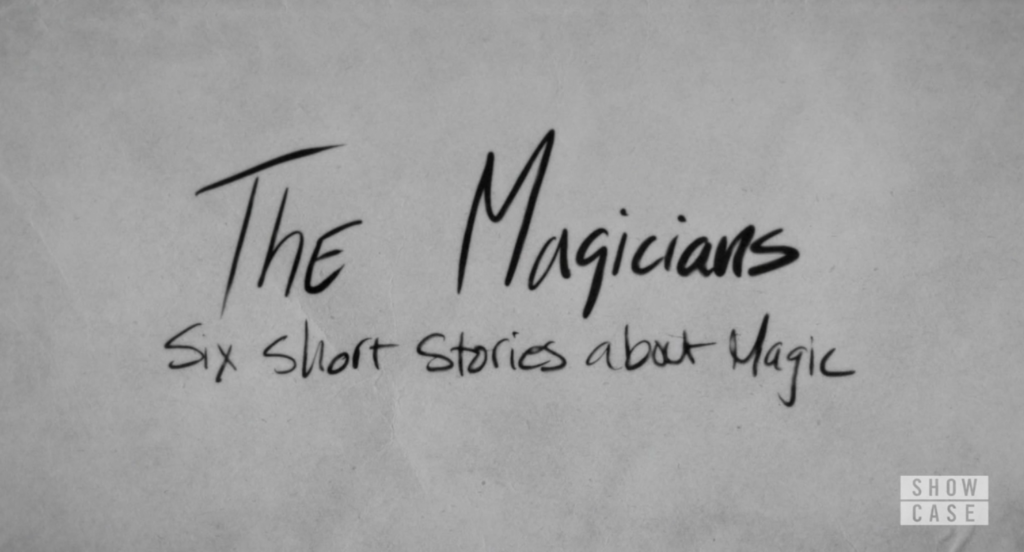 The Magicians
Six Short Stories about Magic
SHOW
CASE